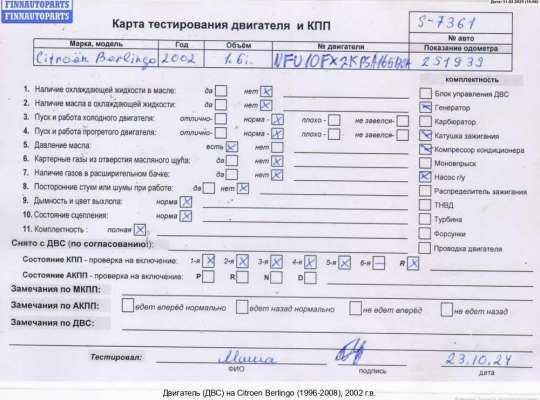 FINNAUTOPARTS
FINNAUTOPARTS
Карта тестирования двигателя и КПП
S-7361
№ авто
Марка, модель Год Объём № двигателя Показание одометра
Citroën Berlingo 2002 1.6i 251939
комплектность
1. Наличие охлаждающей жидкости в масле: да нет X
2. Наличие масла в охлаждающей жидкости: да нет X
3. Пуск и работа холодного двигателя: отлично- норма - X плохо - не завелся-
4. Пуск и работа прогретого двигателя: отлично- норма - X плохо - не завелся-
5. Давление масла: есть X нет
6. Картерные газы из отверстия масляного щупа: да нет X
7. Наличие газов в расширительном бачке: да нет X
8. Посторонние стуки или шумы при работе: да нет X
9. Дымность и цвет выхлопа: норма X
10. Состояние сцепления: норма X
11. Комплектность : полная X
Блок управления ДВС
X Генератор
Карбюратор
X Катушка зажигания
X Компрессор кондиционера
Моновпрыск
X Насос г/у
Распределитель зажигания
ТНВД
Турбина
Форсунки
Проводка двигателя
Снято с ДВС (по согласованию!):
Состояние КПП - проверка на включение: 1-я X 2-я X 3-я X 4-я X 5-я X 6-я — R X
Состояние АКПП - проверка на включение: P R N D
Замечания по МКПП:
Замечания по АКПП: едет вперёд нормально едет назад нормально не едет вперёд не едет назад
Замечания по ДВС:
Тестировал: Миша 23.10.24
ФИО подпись дата
Двигатель (ДВС) на Citroen Berlingo (1996-2008), 2002 г.в.